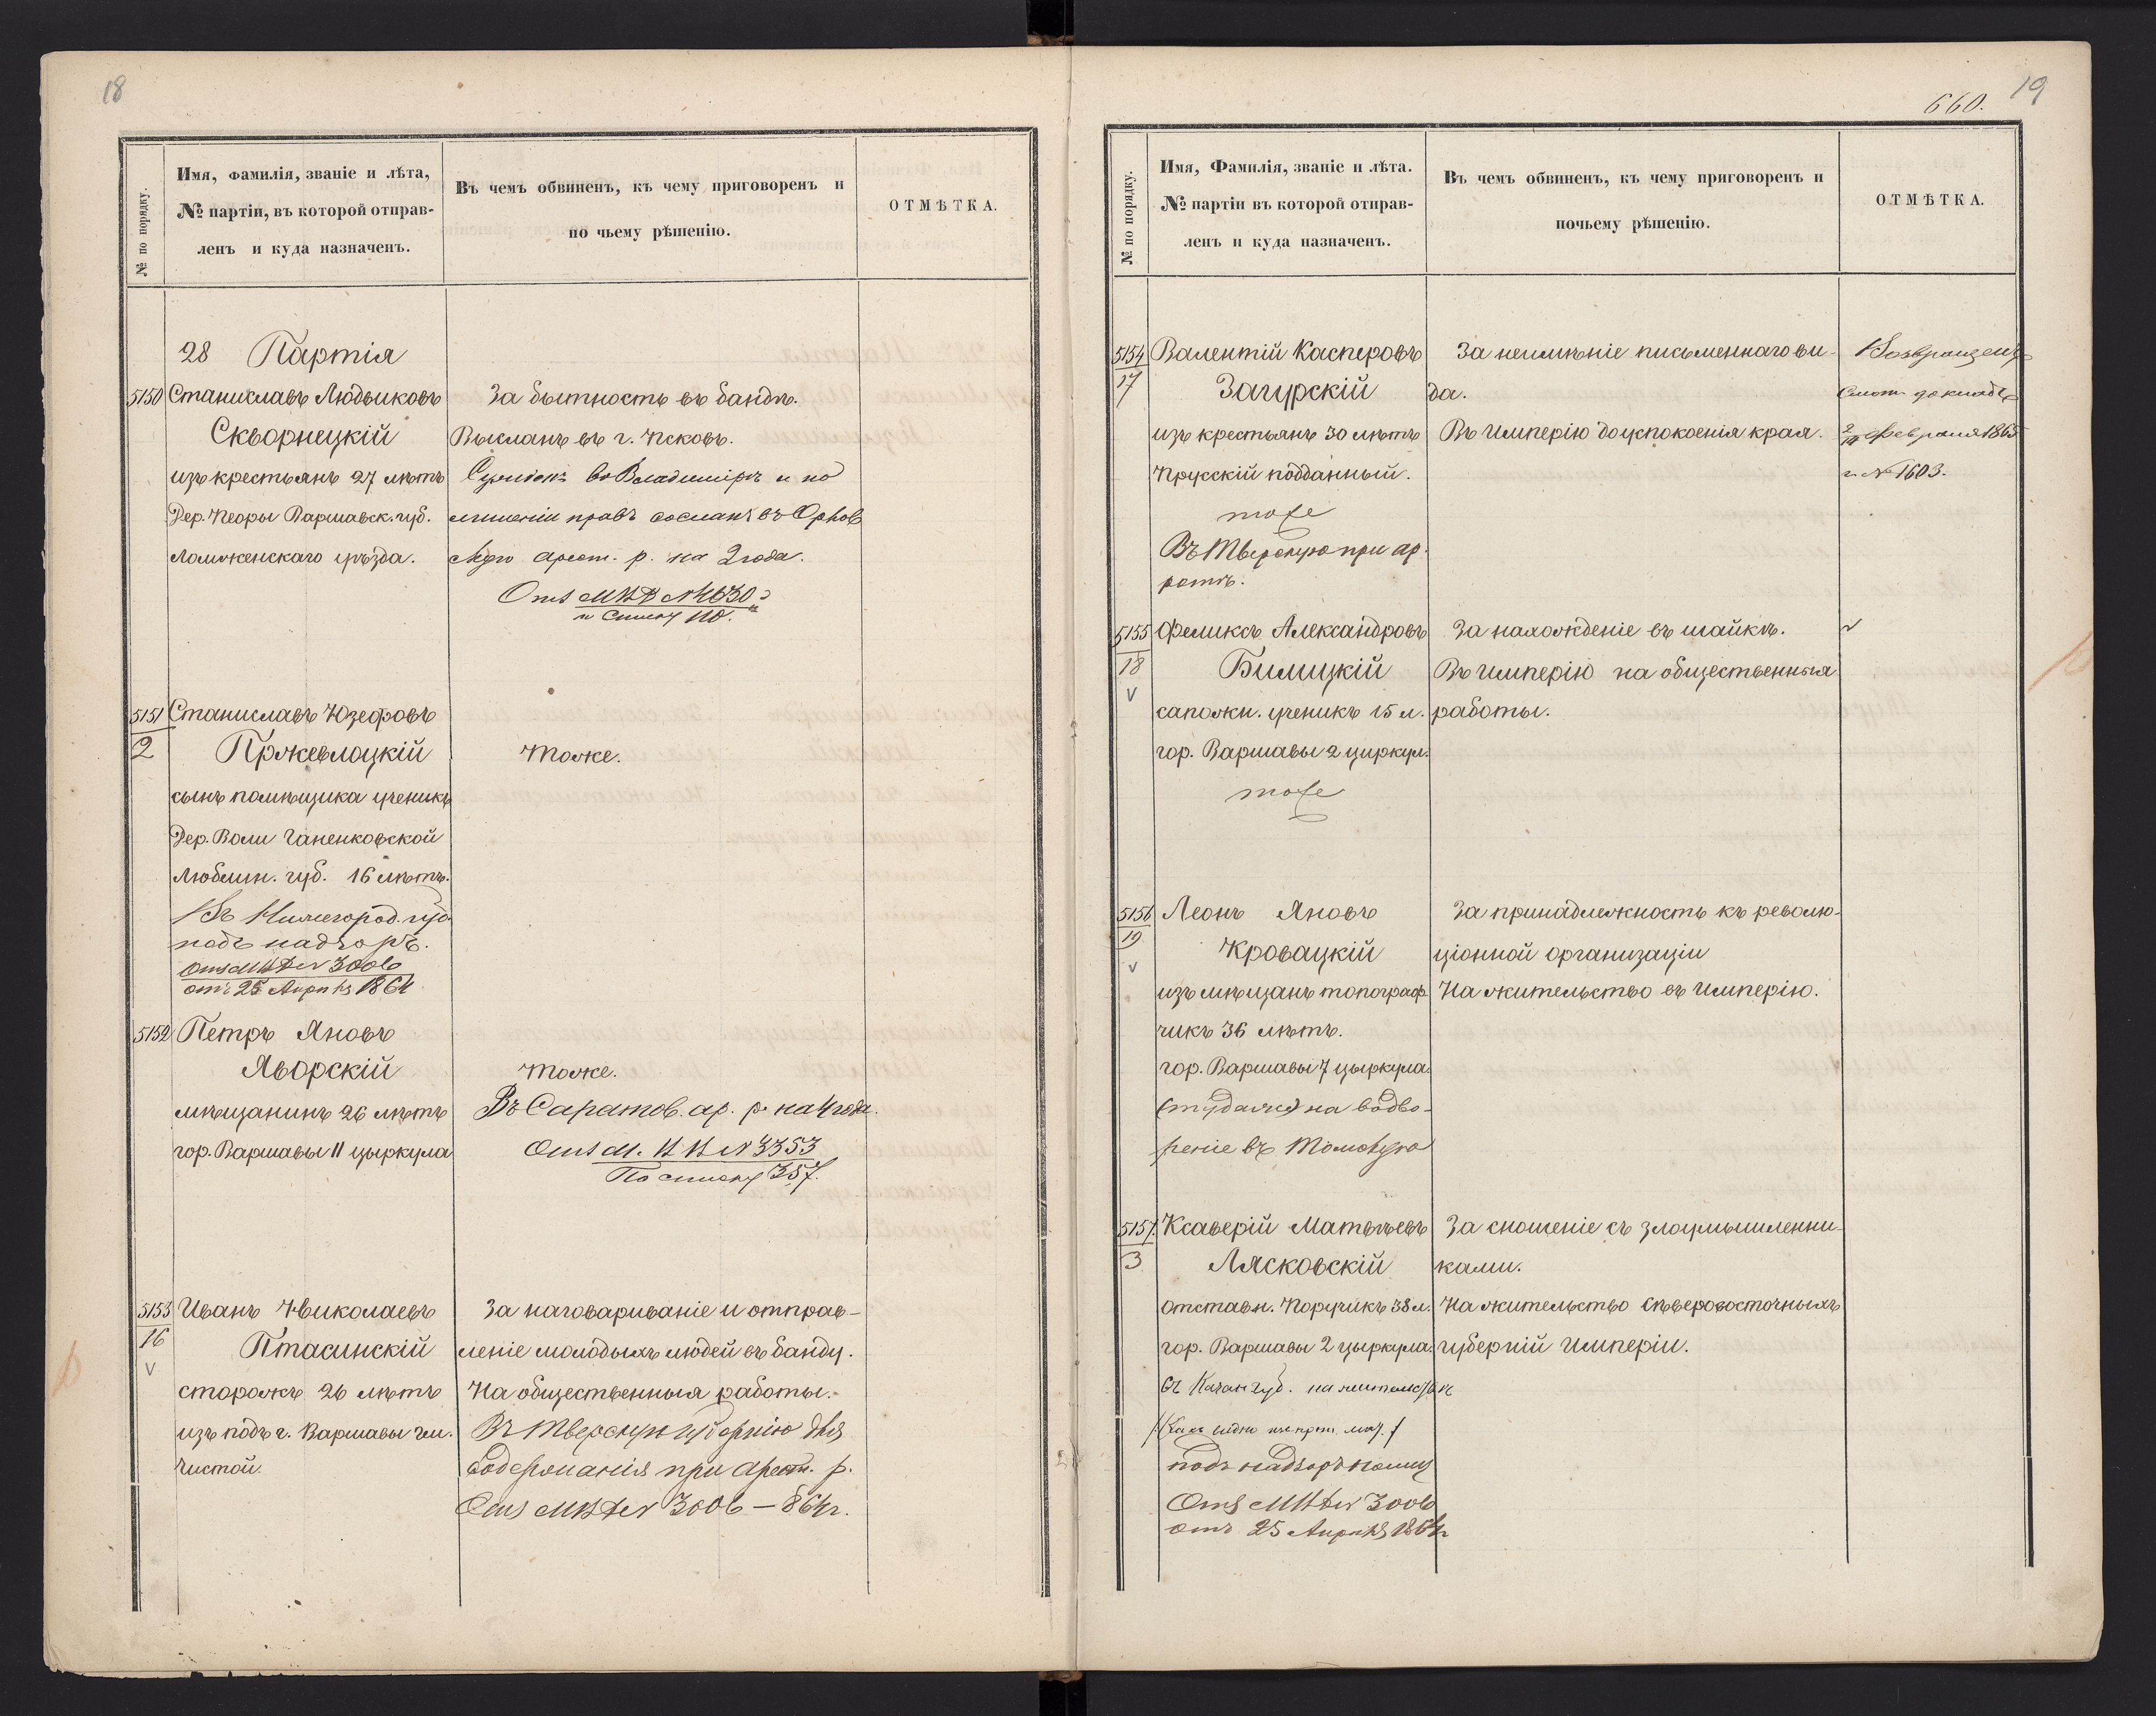 18
№ по порядку.
Имя, фамилія, званіе и лѣта,
№ партіи, въ которой отправ-
ленъ и куда назначенъ.
Въ чемъ обвиненъ, къ чему приговоренъ и
по чьему рѣшенію.
ОТМѢТКА.
28 Партія
5150 Станиславъ Людвиковъ
Скворнецкій
изъ крестьянъ 27 лѣтъ
Дер. Пеоры Варшавск. губ.
Ломженскаго уѣзда.
За бытность въ бандѣ.
Высланъ въ г. Псковъ.
Сужденъ во Владимірѣ и по
лишеніи правъ сосланъ въ Орлов
скую арест. р. на 2 года.
Отъ МВД № 1630
и списку 110.
5151
2
Станиславъ Юзефовъ
Пржевлоцкій
сынъ помѣщика ученикъ
Дер. Воли Ганенковской
Люблин. губ. 16 лѣтъ.
Въ Нижегород. губ.
подъ надзоръ.
Отъ МВД № 3006
отъ 25 Апрѣля 1864
тоже.
5152 Петръ Яновъ
Яворскій
мѣщанинъ 26 лѣтъ
гор. Варшавы 11 цыркула
тоже.
Въ Саратов. ар. р. на 4 года.
Отъ М. В. Д. № 3353
По списку 357.
5153
16
v
Иванъ Николаевъ
Птасинскій
сторожъ 26 лѣтъ
изъ подъ г. Варшавы гм.
Чистой.
За наговариваніе и отправ-
леніе молодыхъ людей въ банду.
На общественныя работы.
Въ Тверскую губернію для
содержанія при арест. р.
Отъ МВД № 3006 — 864 г.
660. 19
№ по порядку.
Имя, Фамилія, званіе и лѣта.
№ партіи въ которой отправ-
ленъ и куда назначенъ.
Въ чемъ обвиненъ, къ чему приговоренъ и
почьему рѣшенію.
ОТМѢТКА.
5154
17
Валентій Касперовъ
Загурскій
изъ крестьянъ 30 лѣтъ
Прусскій подданный.
тоже
Въ Тверскую при ар.
ротѣ.
За неимѣніе письменнаго ви-
да.
Въ Имперію до успокоенія края.
Возвращенъ
Смот. докладъ
2/14 Февраля 1865
г. № 1603.
5155
18
v
Феликсъ Александровъ
Билицкій
сапожн. ученикъ 15 л.
гор. Варшавы 2 циркул.
тоже
За нахожденіе въ шайкѣ.
Въ Имперію на общественныя
работы.
v
5156
19
v
Леонъ Яновъ
Кровацкій
изъ мѣщанъ топограф
чикъ 36 лѣтъ.
гор. Варшавы 7 цыркула.
(тудаже) на водво-
реніе въ Томскую
За принадлежность къ револю-
ціонной организаціи
На жительство въ Имперію.
5157.
3
Ксаверій Матвѣевъ
Лясковскій
отставн. Поручикъ 38 л.
гор. Варшавы 2 цыркула.
въ Казан губ. на жительство
подъ надзоръ полиц
Отъ МВД № 3006
отъ 25 Апрѣля 1864 г.
За сношеніе съ злоумышленни-
ками.
На жительство сѣверовосточныхъ
губерній Имперіи.